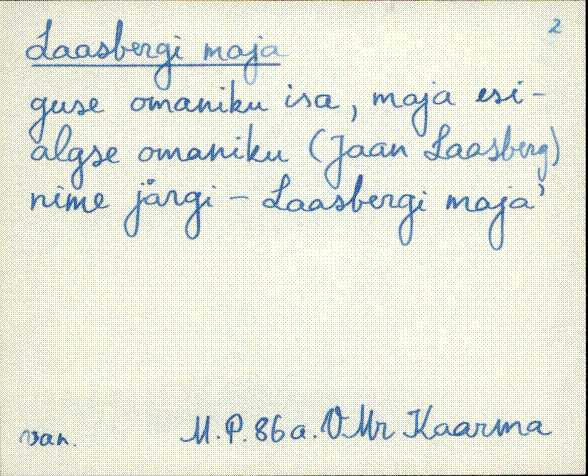 2
Laasbergi maja
guse omaniku isa, maja esi-
algse omaniku (Jaan Laasberg)
nime järgi - Laasbergi maja'
van. M.P. 86a. VMr Kaarma